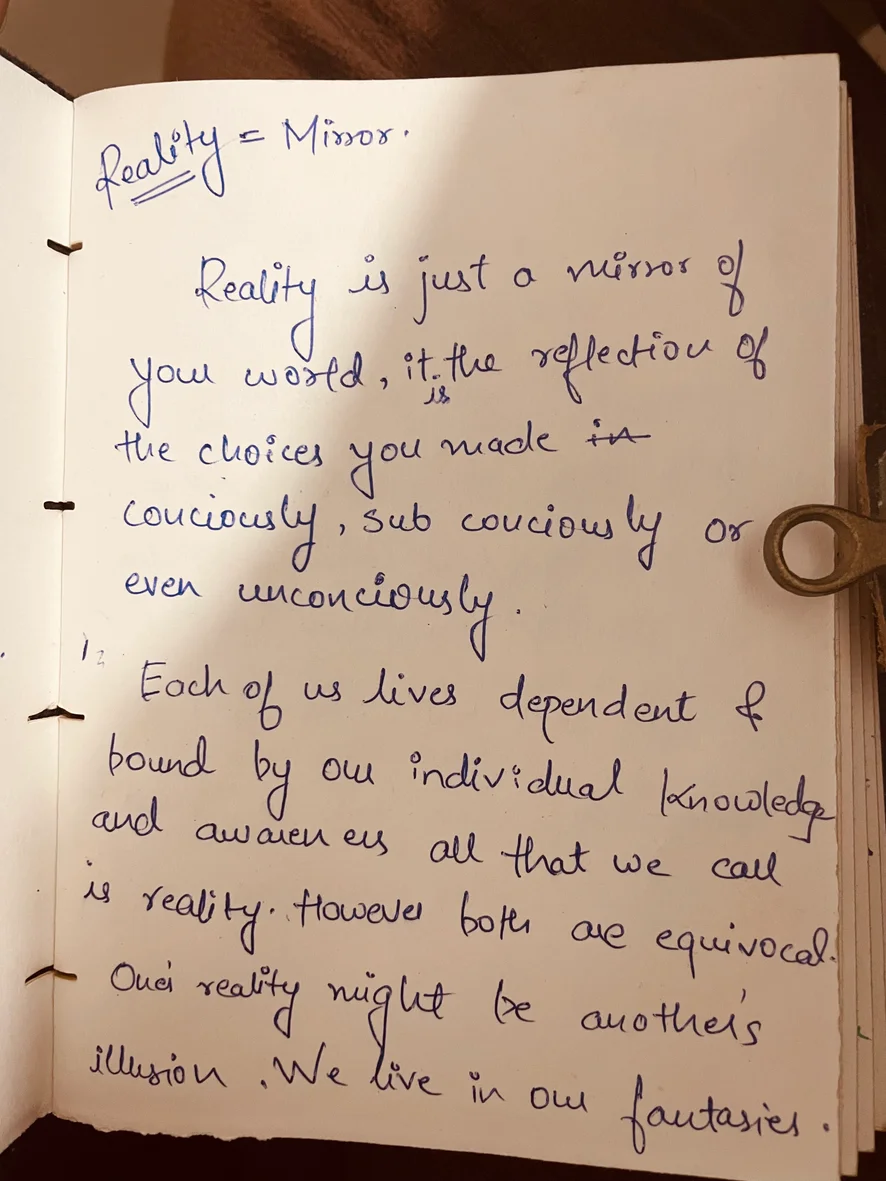 Reality = Mirror.
Reality is just a mirror of
your world, it is the reflection of
the choices you made in
couciously, sub couciously or
even unconciously.
Each of us lives dependent &
bound by our individual knowledge
and awareness all that we call
is reality. However both are equivocal.
One's reality might be another's
illusion. We live in our fantasies.